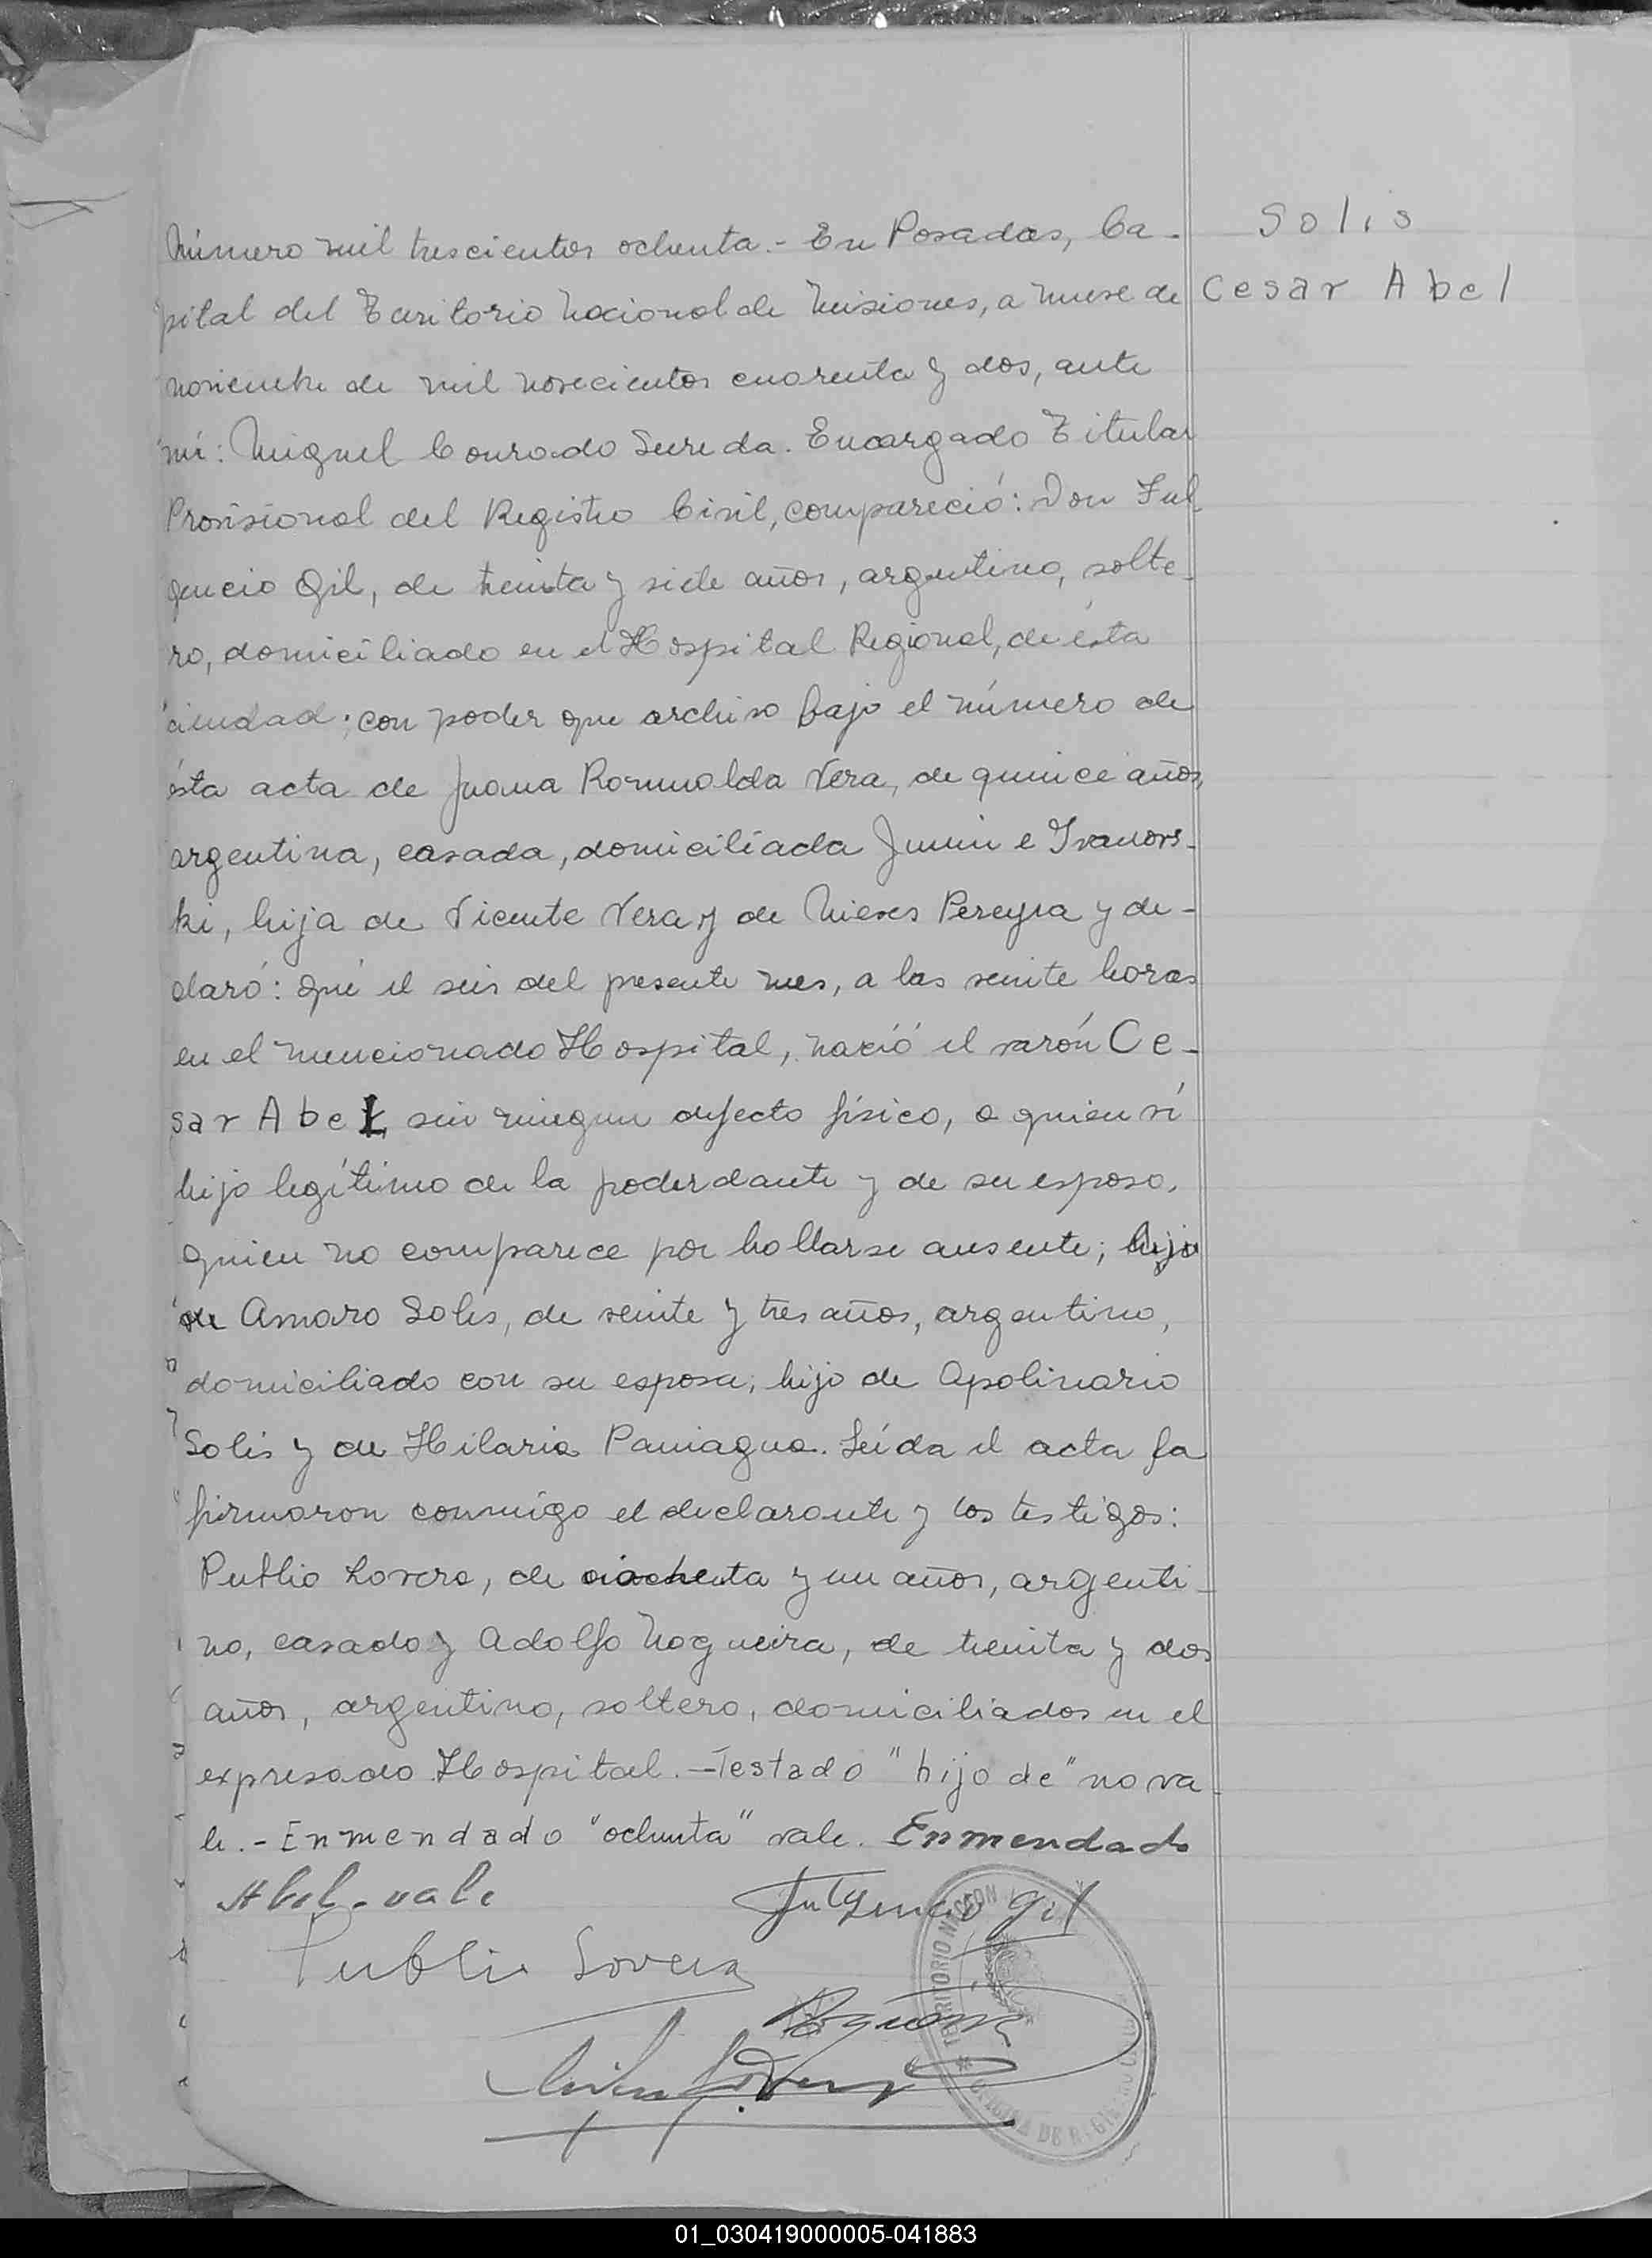 Solis
Cesar Abel
Número mil trescientos ochenta.- En Posadas, Ca-
pital del Territorio Nacional de Misiones, a nueve de
noviembre de mil novecientos cuarenta y dos, ante
mí: Miguel Conrado Sureda. Encargado Titular
Provisional del Registro Civil, compareció: Don Ful
gencio Gil, de treinta y siete años, argentino, solte-
ro, domiciliado en el Hospital Regional, de ésta
ciudad; con poder que archivo bajo el número de
ésta acta de Juana Romualda Vera, de quince años,
argentina, casada, domiciliada Junin e Ivanovs-
ki, hija de Vicente Vera y de Nieves Pereyra y de-
claró: Qué el seis del presente mes, a las veinte horas
en el mencionado Hospital, nació el varón Ce-
sar Abel, sin ningun defecto físico, a quien ví
hijo legítimo de la poderdante y de su esposo,
quien no comparece por hallarse ausente; hijo
de Amaro Solis, de veinte y tres años, argentino,
domiciliado con su esposa; hijo de Apolinario
Solis y de Hilaria Paniagua. Leída el acta la
firmaron conmigo el declarante y los testigos:
Publio Lovera, de ochenta y un años, argenti-
no, casado y Adolfo Nogueira, de treinta y dos
años, argentino, soltero, domiciliados en el
expresado Hospital.-Testado "hijo de" no va-
le.- Enmendado "ochenta" vale. Enmendado
Abel-vale
Fulgencio Gil
Publio Lovera
TERRITORIO NACION
OFICINA DE REGISTRO CIVIL
01_030419000005-041883